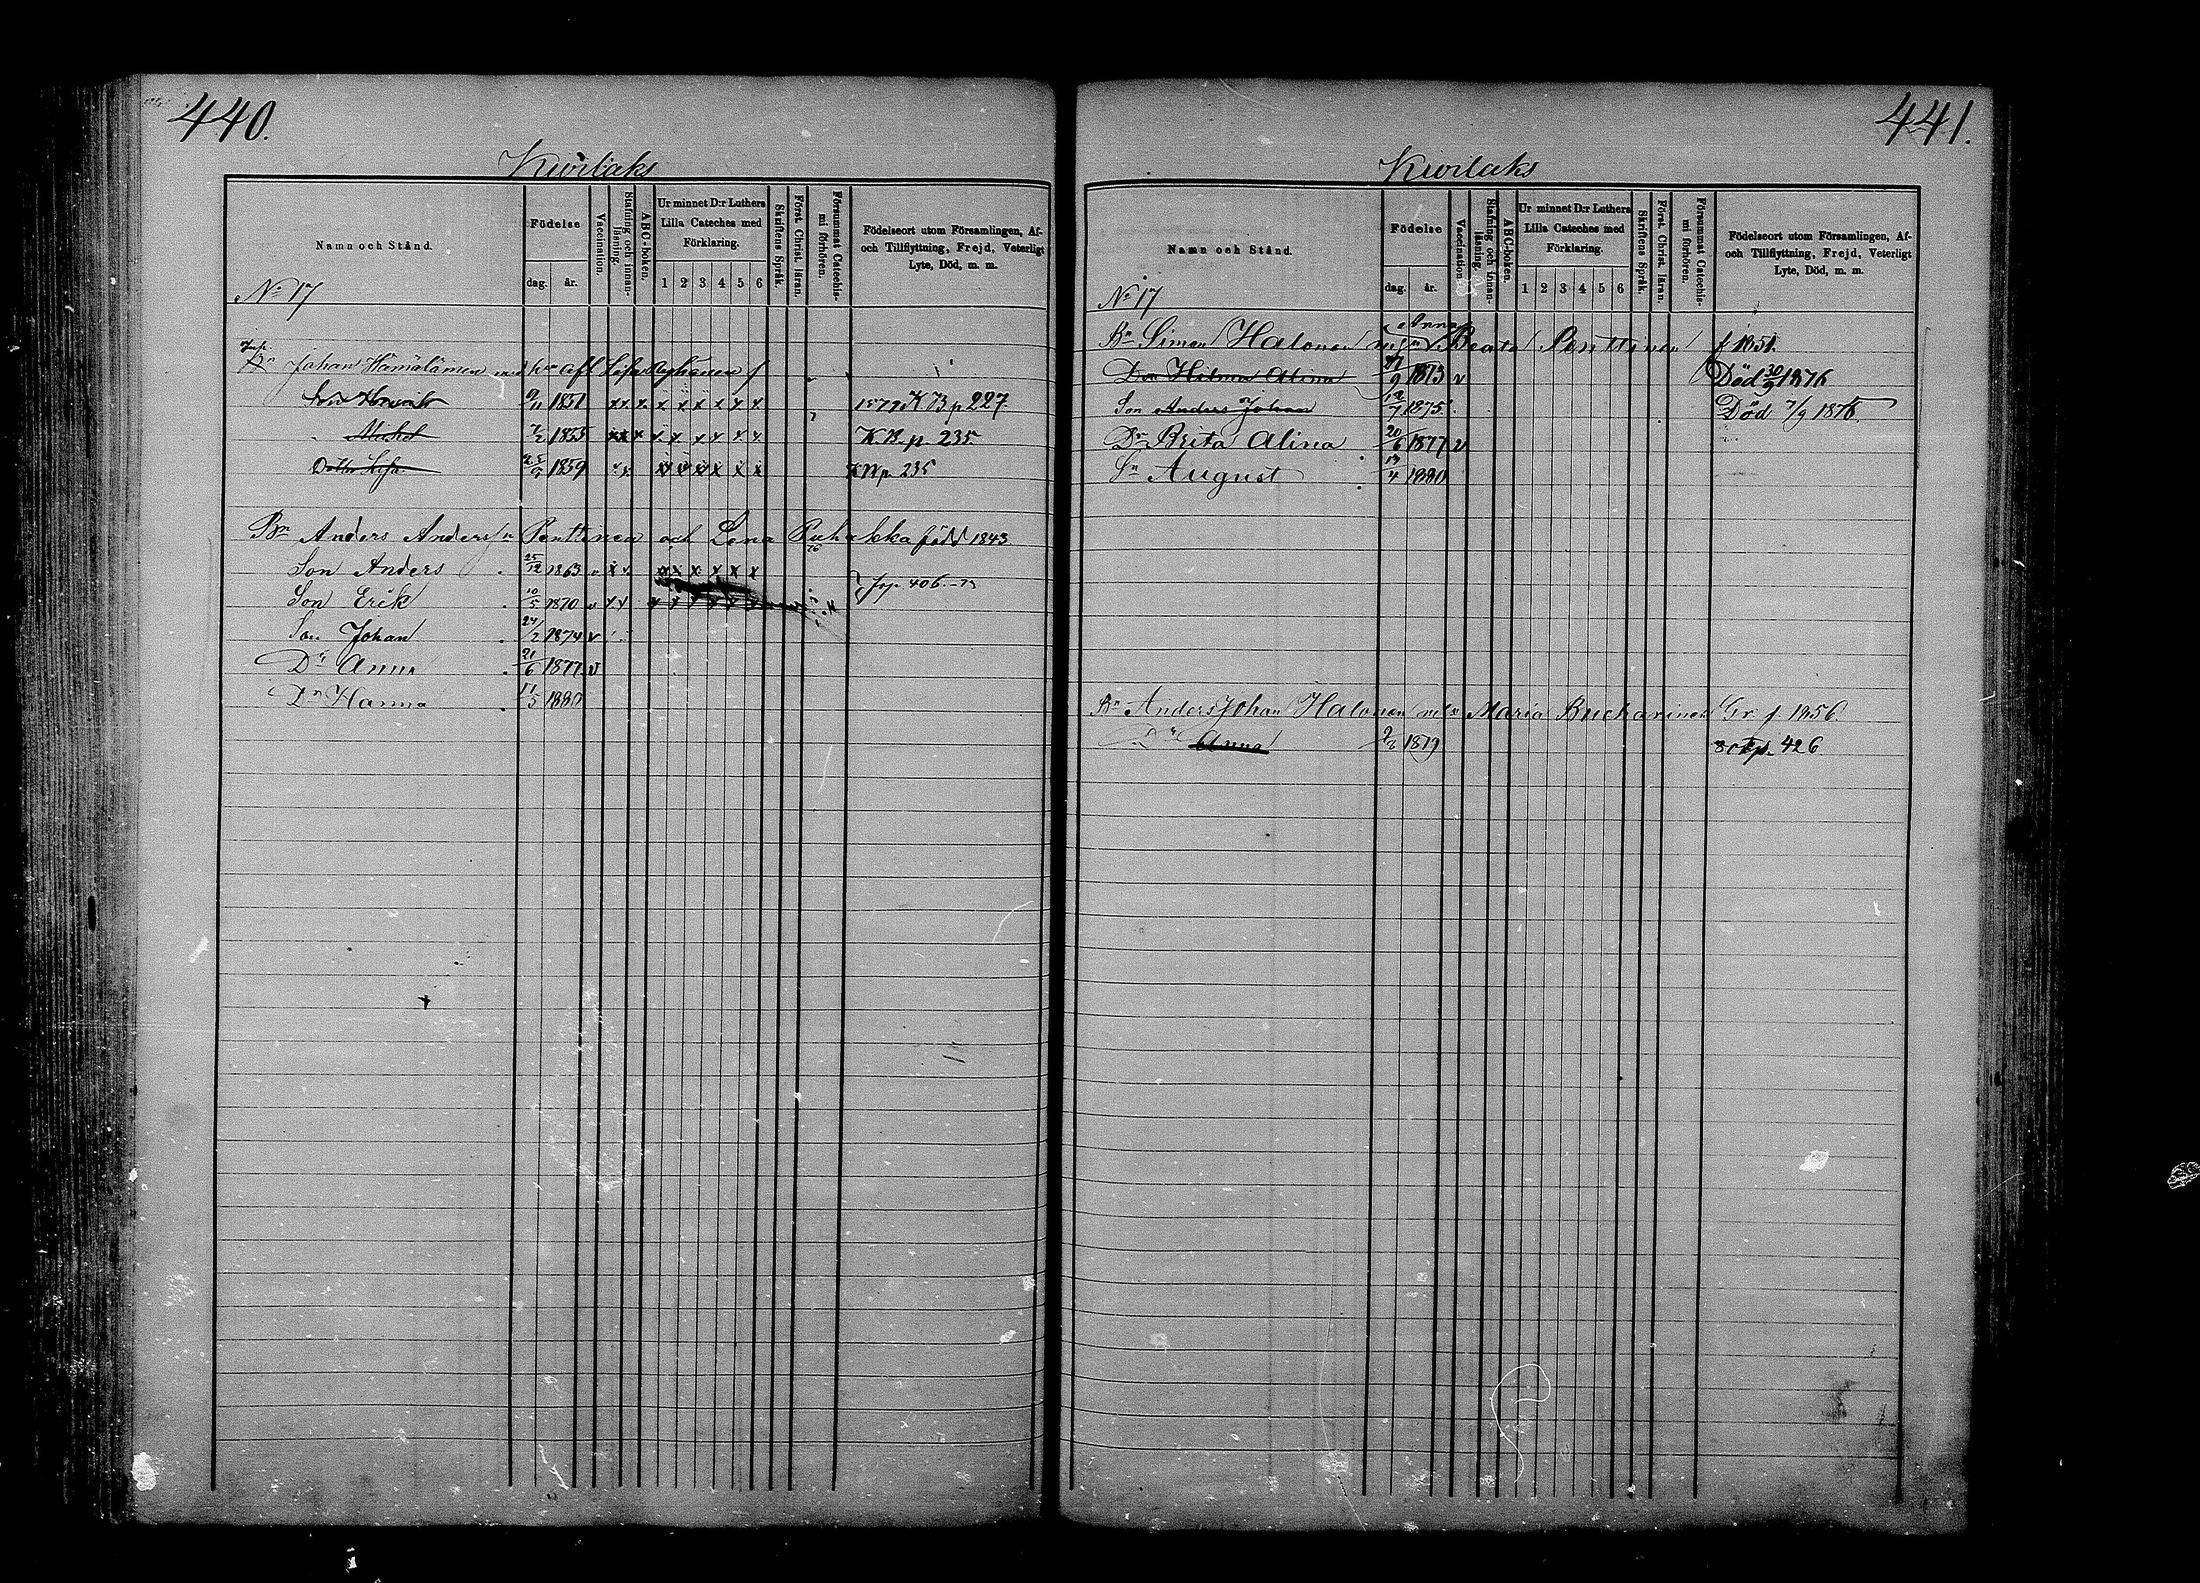 440.
Kivilaks
Namn och Stånd.
Födelse
dag.
år.
Vaccination.
Stafning och innanläsning.
ABC-boken.
Ur minnet D:r Luthers Lilla Cateches med Förklaring.
1 2 3 4 5 6
Skriftens Språk.
Först. Christ. läran.
Försummat Catechismi förhören.
Födelseort utom Församlingen, Af- och Tillflyttning, Frejd, Veterligt Lyte, Död, m. m.
No 17
Inh.
Bn Johan Hämäläinen
1851 x x x x x x x x x 1879 K B p 227
Michel 1855 x x x x x x x x x K.B. p. 235
Dotter Lisa 1859 x x x x x x x x p 235
Bn Anders Anderss:n Penttinen och Lena Puhakka född 1843
Son Anders 25/12 1863 v x x x x x x x x
Inh. 406.
Son Erik 10/5 1870 v x x x x x x x x
Son Johan 24/2 1874 v
Dr Anna 21/6 1877 v
Dr Hanna 11/5 1880
441.
Kivilaks
Namn och Stånd.
Födelse
dag.
år.
Vaccination.
Stafning och innanläsning.
ABC-boken.
Ur minnet D:r Luthers Lilla Cateches med Förklaring.
1 2 3 4 5 6
Skriftens Språk.
Först. Christ. läran.
Försummat Catechismi förhören.
Födelseort utom Församlingen, Af- och Tillflyttning, Frejd, Veterligt Lyte, Död, m. m.
No 17
Anna
Bn Simon Halonen Beata Penttinen f 1851.
Dr Hilma Alina 27/9 1873 v Död 30/9 1876
Son Anders Johan 12/7 1875 Död 7/9 1876
Dr Brita Alina 20/6 1877 v
Sn August 13/4 1880
Bn Anders Johan Halonen Maria Bucharinov Gr f. 1856.
Dr Anna 1879 p. 426